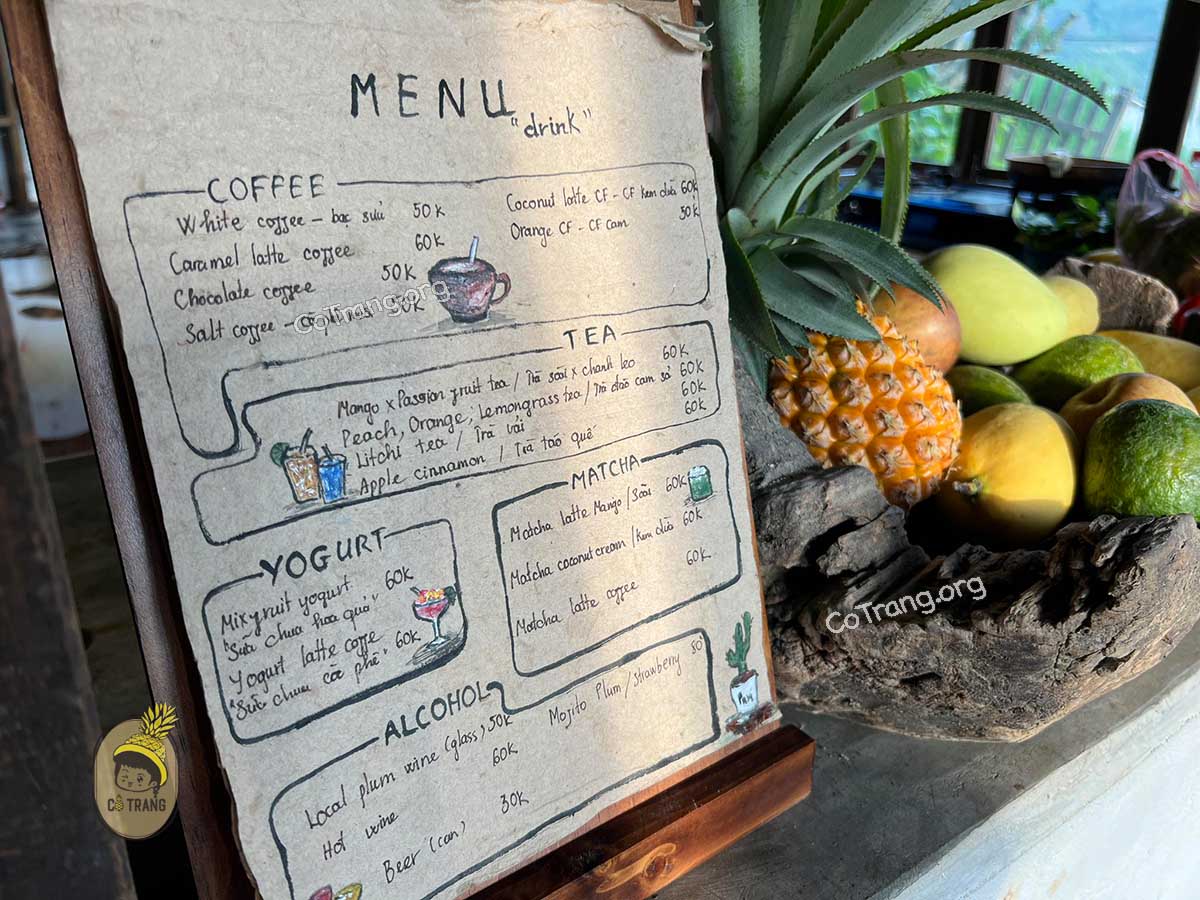 MENU
"drink"
COFFEE
White coffee - bạc sửu 50K
Caramel latte coffee 60K
Chocolate coffee 50K
Salt coffee -
Coconut latte CF - CF Kem dừa 60K
Orange CF - CF cam 50K
TEA
Mango x Passion fruit tea / Trà xoài x chanh leo 60K
Peach, Orange, Lemongrass tea / Trà đào cam sả 60K
Litchi tea / Trà vải 60K
Apple cinnamon / Trà táo quế 60K
YOGURT
Mix fruit yogurt 60K
"Sữa chua hoa quả"
Yogurt latte coffe
"Sữa chua cà phê" 60K
MATCHA
Matcha latte Mango / Xoài 60K
Matcha coconut cream / Kem dừa 60K
Matcha latte coffee 60K
ALCOHOL
Local plum wine (glass) 50K
Hot wine 60K
Beer (can) 30K
Mojito Plum / strawberry
CoTrang.org
CoTrang.org
CÔ TRANG